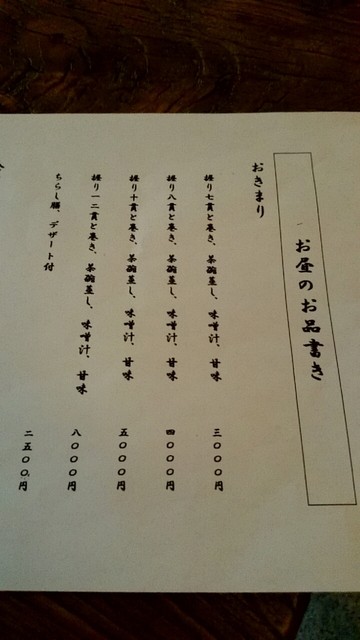 お昼のお品書き
おきまり
握り七貫と巻き、茶碗蒸し、味噌汁、甘味 三〇〇〇円
握り八貫と巻き、茶碗蒸し、味噌汁、甘味 四〇〇〇円
握り十貫と巻き、茶碗蒸し、味噌汁、甘味 五〇〇〇円
握り一二貫と巻き、茶碗蒸し、味噌汁、甘味 八〇〇〇円
ちらし膳、デザート付 二五〇〇円